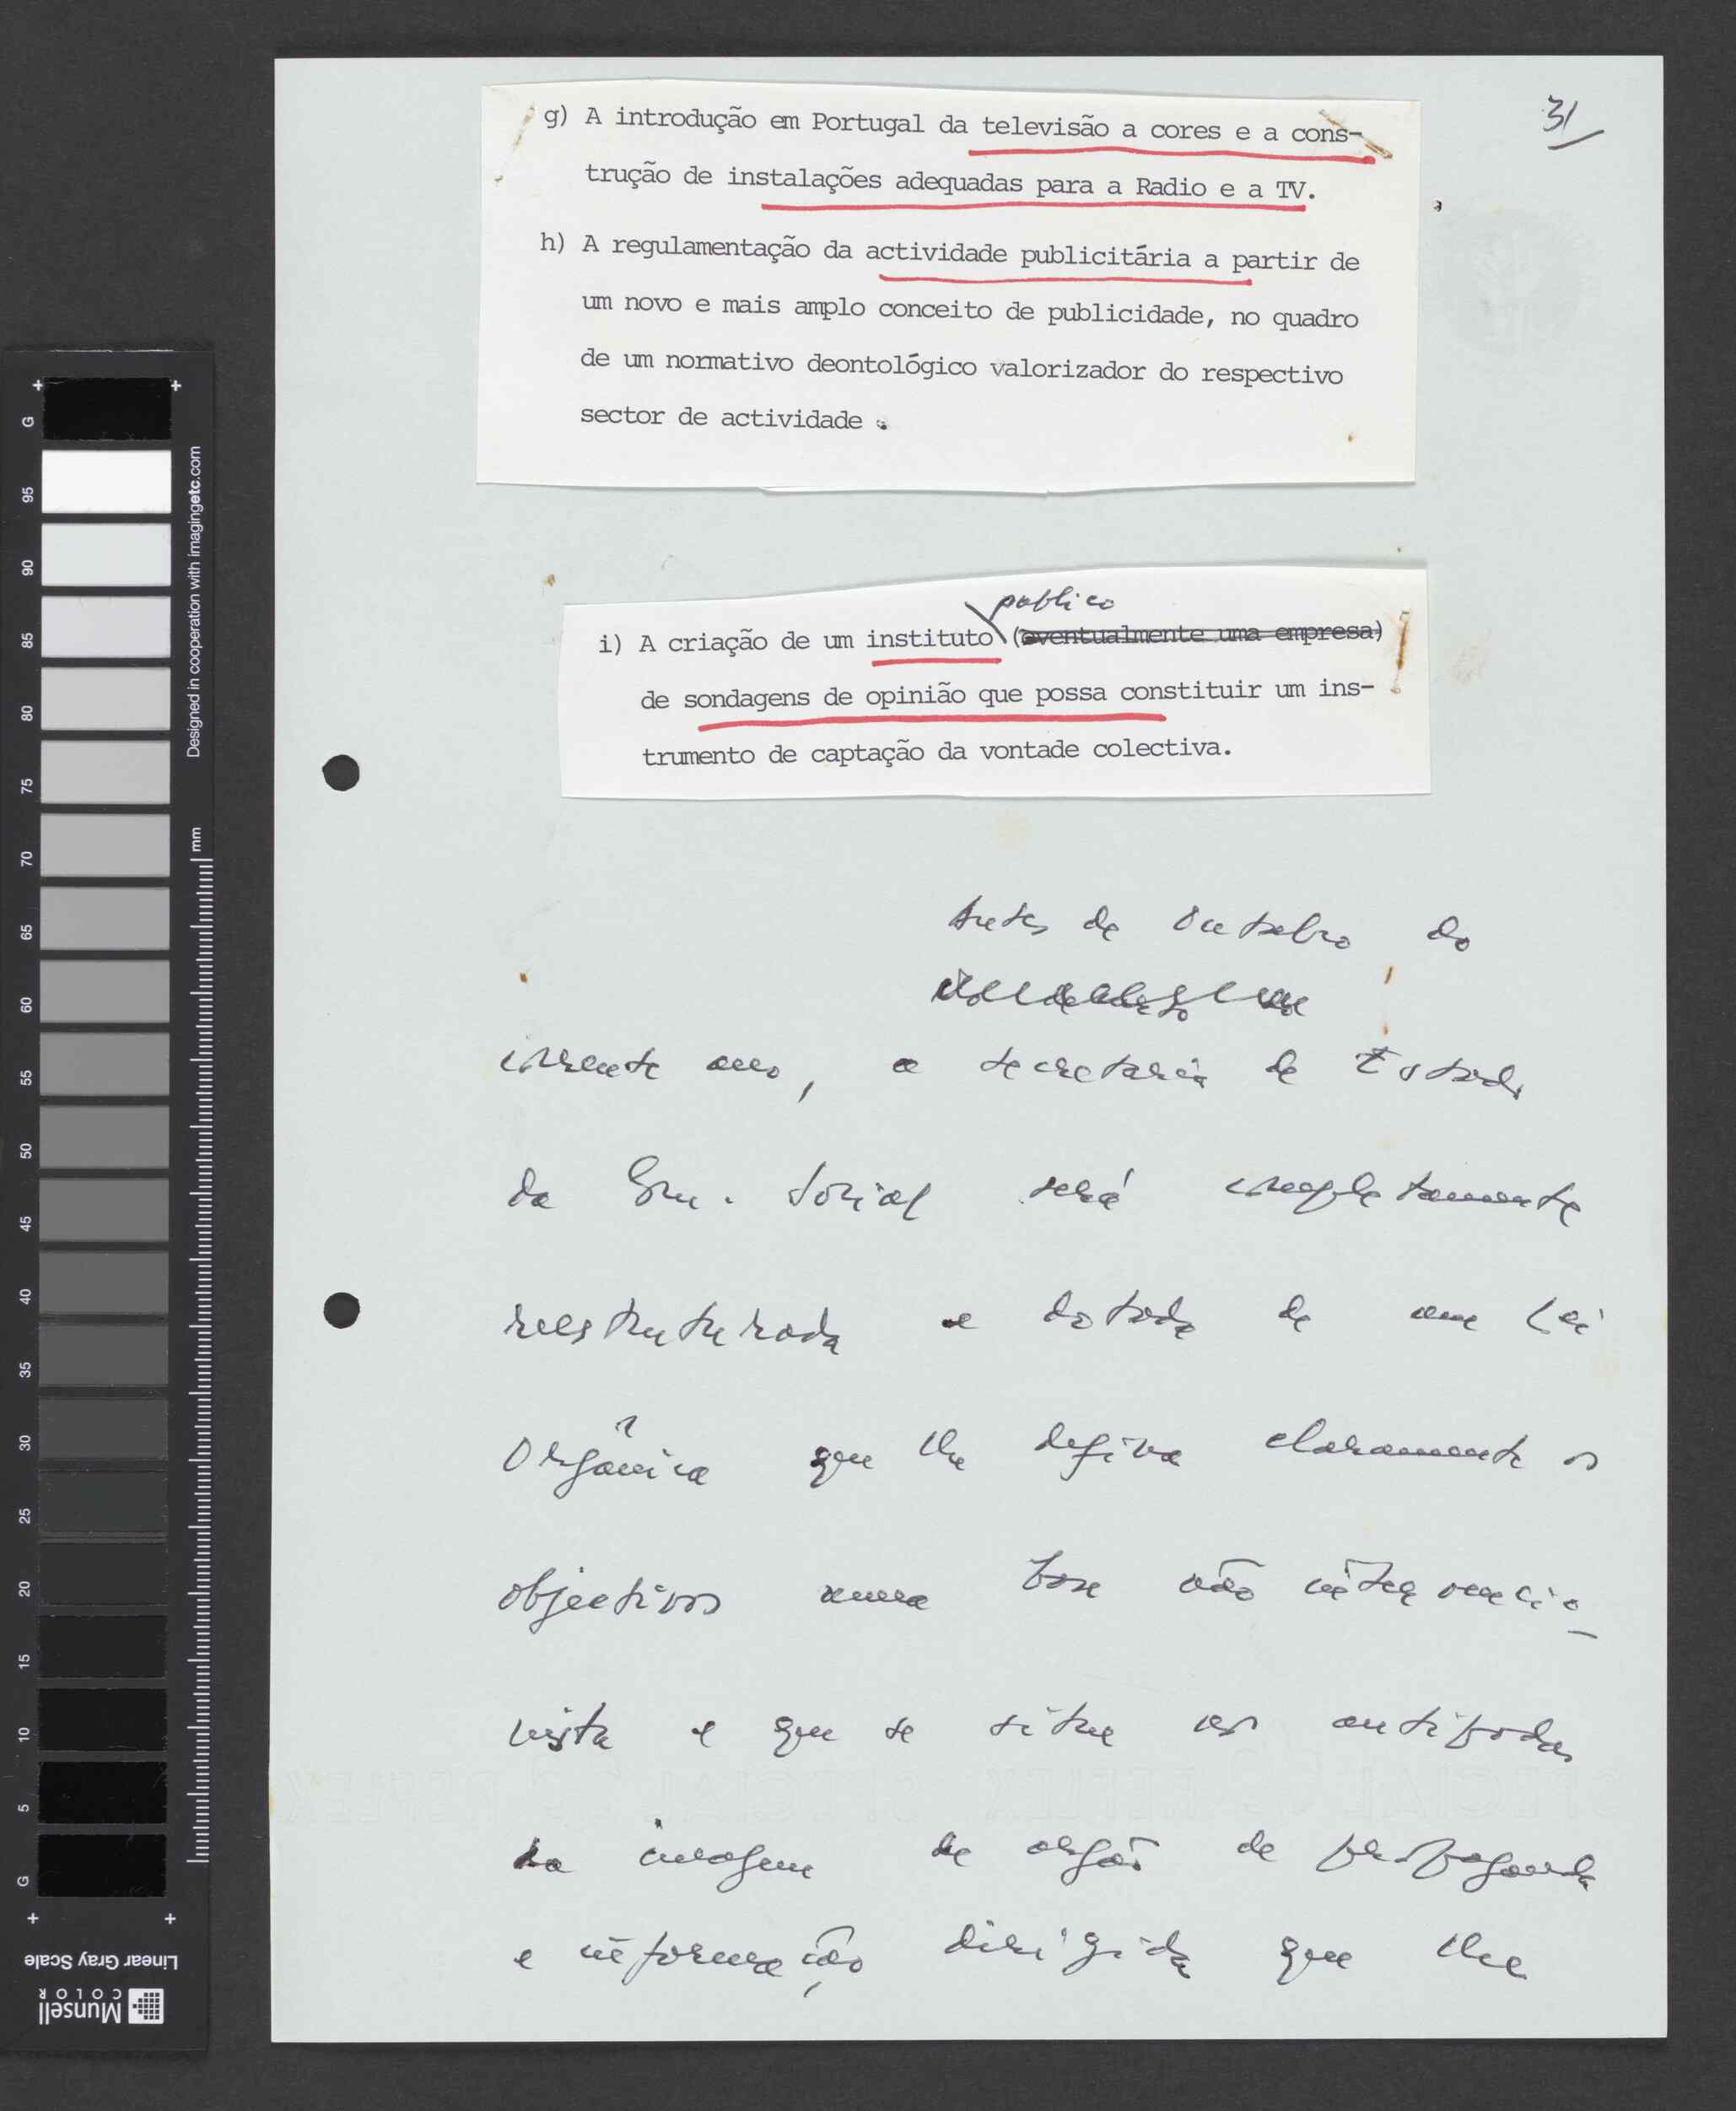 31
g) A introdução em Portugal da televisão a cores e a cons-
trução de instalações adequadas para a Radio e a TV.
h) A regulamentação da actividade publicitária a partir de
um novo e mais amplo conceito de publicidade, no quadro
de um normativo deontológico valorizador do respectivo
sector de actividade.
publico
i) A criação de um instituto (eventualmente uma empresa)
de sondagens de opinião que possa constituir um ins-
trumento de captação da vontade colectiva.
Antes de Outubro do
corrente ano, a Secretaria de Estado
da Com. Social será completamente
reestruturada e dotada de uma Lei
Orgânica que lhe defina claramente os
objectivos numa base não intervencio_
nista e que se situe nos antípodas
da imagem de orgão de propaganda
e informação dirigida que lhe
G
95
90
85
80
75
70
65
60
55
50
45
40
35
30
25
20
15
10
5
G
Designed in cooperation with imagingetc.com
mm
Linear Gray Scale
Munsell
COLOR